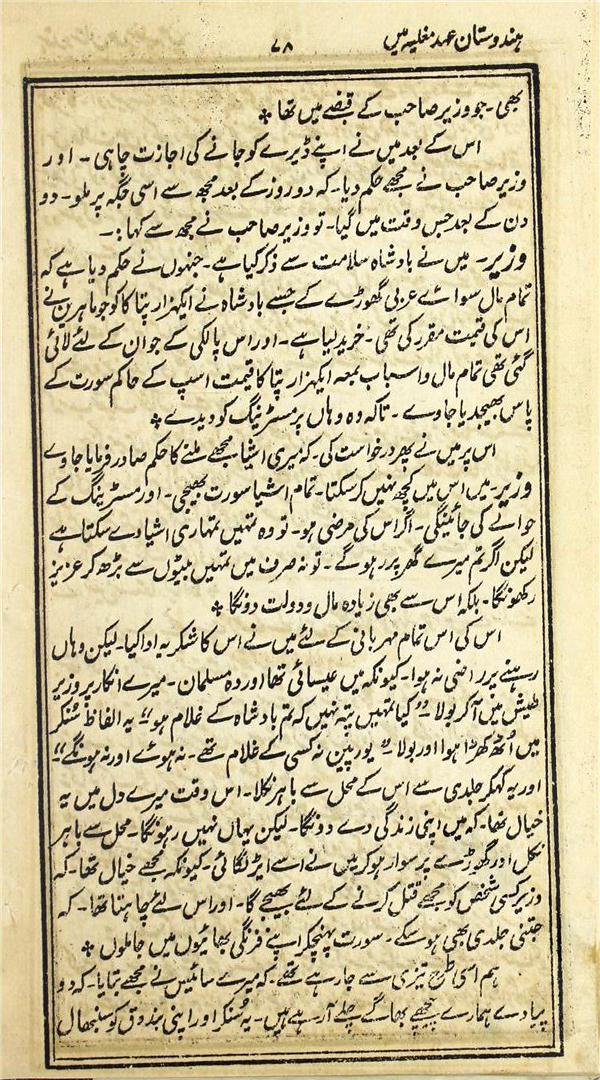 ہندوستان عہد مغلیہ میں
۷۸
بھی۔ جو وزیر صاحب کے قبضے میں تھا *
اس کے بعد میں نے اپنے ڈیرے کو جانے کی اجازت چاہی۔ اور
وزیر صاحب نے مجھے حکم دیا۔ کہ دو روز کے بعد مجھ سے اسی جگہ پر ملو۔ دو
دن کے بعد جس وقت میں گیا۔ تو وزیر صاحب نے مجھ سے کہا:۔
وزیر۔ میں نے بادشاہ سلامت سے ذکر کیا ہے۔ جنہوں نے حکم دیا ہے کہ
تمام مال سوائے عربی گھوڑے کے جسے بادشاہ نے ایکہزار پتا کا کو جو ماہرین نے
اس کی قیمت مقرر کی تھی۔ خرید لیا ہے۔ اور اس پالکی کے جو ان کے لئے لائی
گئی تھی تمام مال و اسباب بمعہ ایکہزار پتا کا قیمت اسپ کے حاکم سورت کے
پاس بھیجدیا جاوے۔ تاکہ وہ وہاں پر مسٹر ینگ کو دیدے *
اس پر میں نے پھر درخواست کی۔ کہ میری اشیا مجھے ملنے کا حکم صادر فرمایا جاوے
وزیر۔ میں اس میں کچھ نہیں کر سکتا۔ تمام اشیا سورت بھیجی۔ اور مسٹر ینگ کے
حوالے کی جائینگی۔ اگر اس کی مرضی ہو۔ تو وہ تمہیں تمہاری اشیا دے سکتا ہے
لیکن اگر تم میرے گھر پر رہو گے۔ تو نہ صرف میں تمہیں بیٹوں سے بڑھ کر عزیز
رکھونگا۔ بلکہ اس سے بھی زیادہ مال و دولت دونگا *
اس کی اس تمام مہربانی کے لئے میں نے اس کا شکریہ ادا کیا۔ لیکن وہاں
رہنے پر راضی نہ ہوا۔ کیونکہ میں عیسائی تھا اور وہ مسلمان۔ میرے انکار پر وزیر
طیش میں آکر بولا۔ "کیا تمہیں پتہ نہیں کہ تم بادشاہ کے غلام ہو" یہ الفاظ سُنکر
میں اُٹھ کھڑا ہوا اور بولا۔ "یورپین نہ کسی کے غلام تھے۔ نہ ہوئے اور نہ ہونگے"
اور یہ کہکر جلدی سے اس کے محل سے باہر نکلا۔ اس وقت میرے دل میں یہ
خیال تھا۔ کہ میں اپنی زندگی دے دونگا۔ لیکن یہاں نہیں رہونگا۔ محل سے باہر
نکل اور گھوڑے پر سوار ہو کر میں نے اسے ایڑ لگائی۔ کیونکہ مجھے خیال تھا۔ کہ
وزیر کسی شخص کو مجھے قتل کرنے کے لئے بھیجے گا۔ اور اس لئے چاہتا تھا۔ کہ
جتنی جلدی بھی ہو سکے۔ سورت پہنچکر اپنے فرنگی بھائیوں میں جا ملوں *
ہم اسی طرح تیزی سے جا رہے تھے۔ کہ میرے سائیس نے مجھے بتایا۔ کہ دو
پیادے ہمارے پیچھے بھاگے چلے آ رہے ہیں۔ یہ سُنکر اور اپنی بندوق کو سنبھال